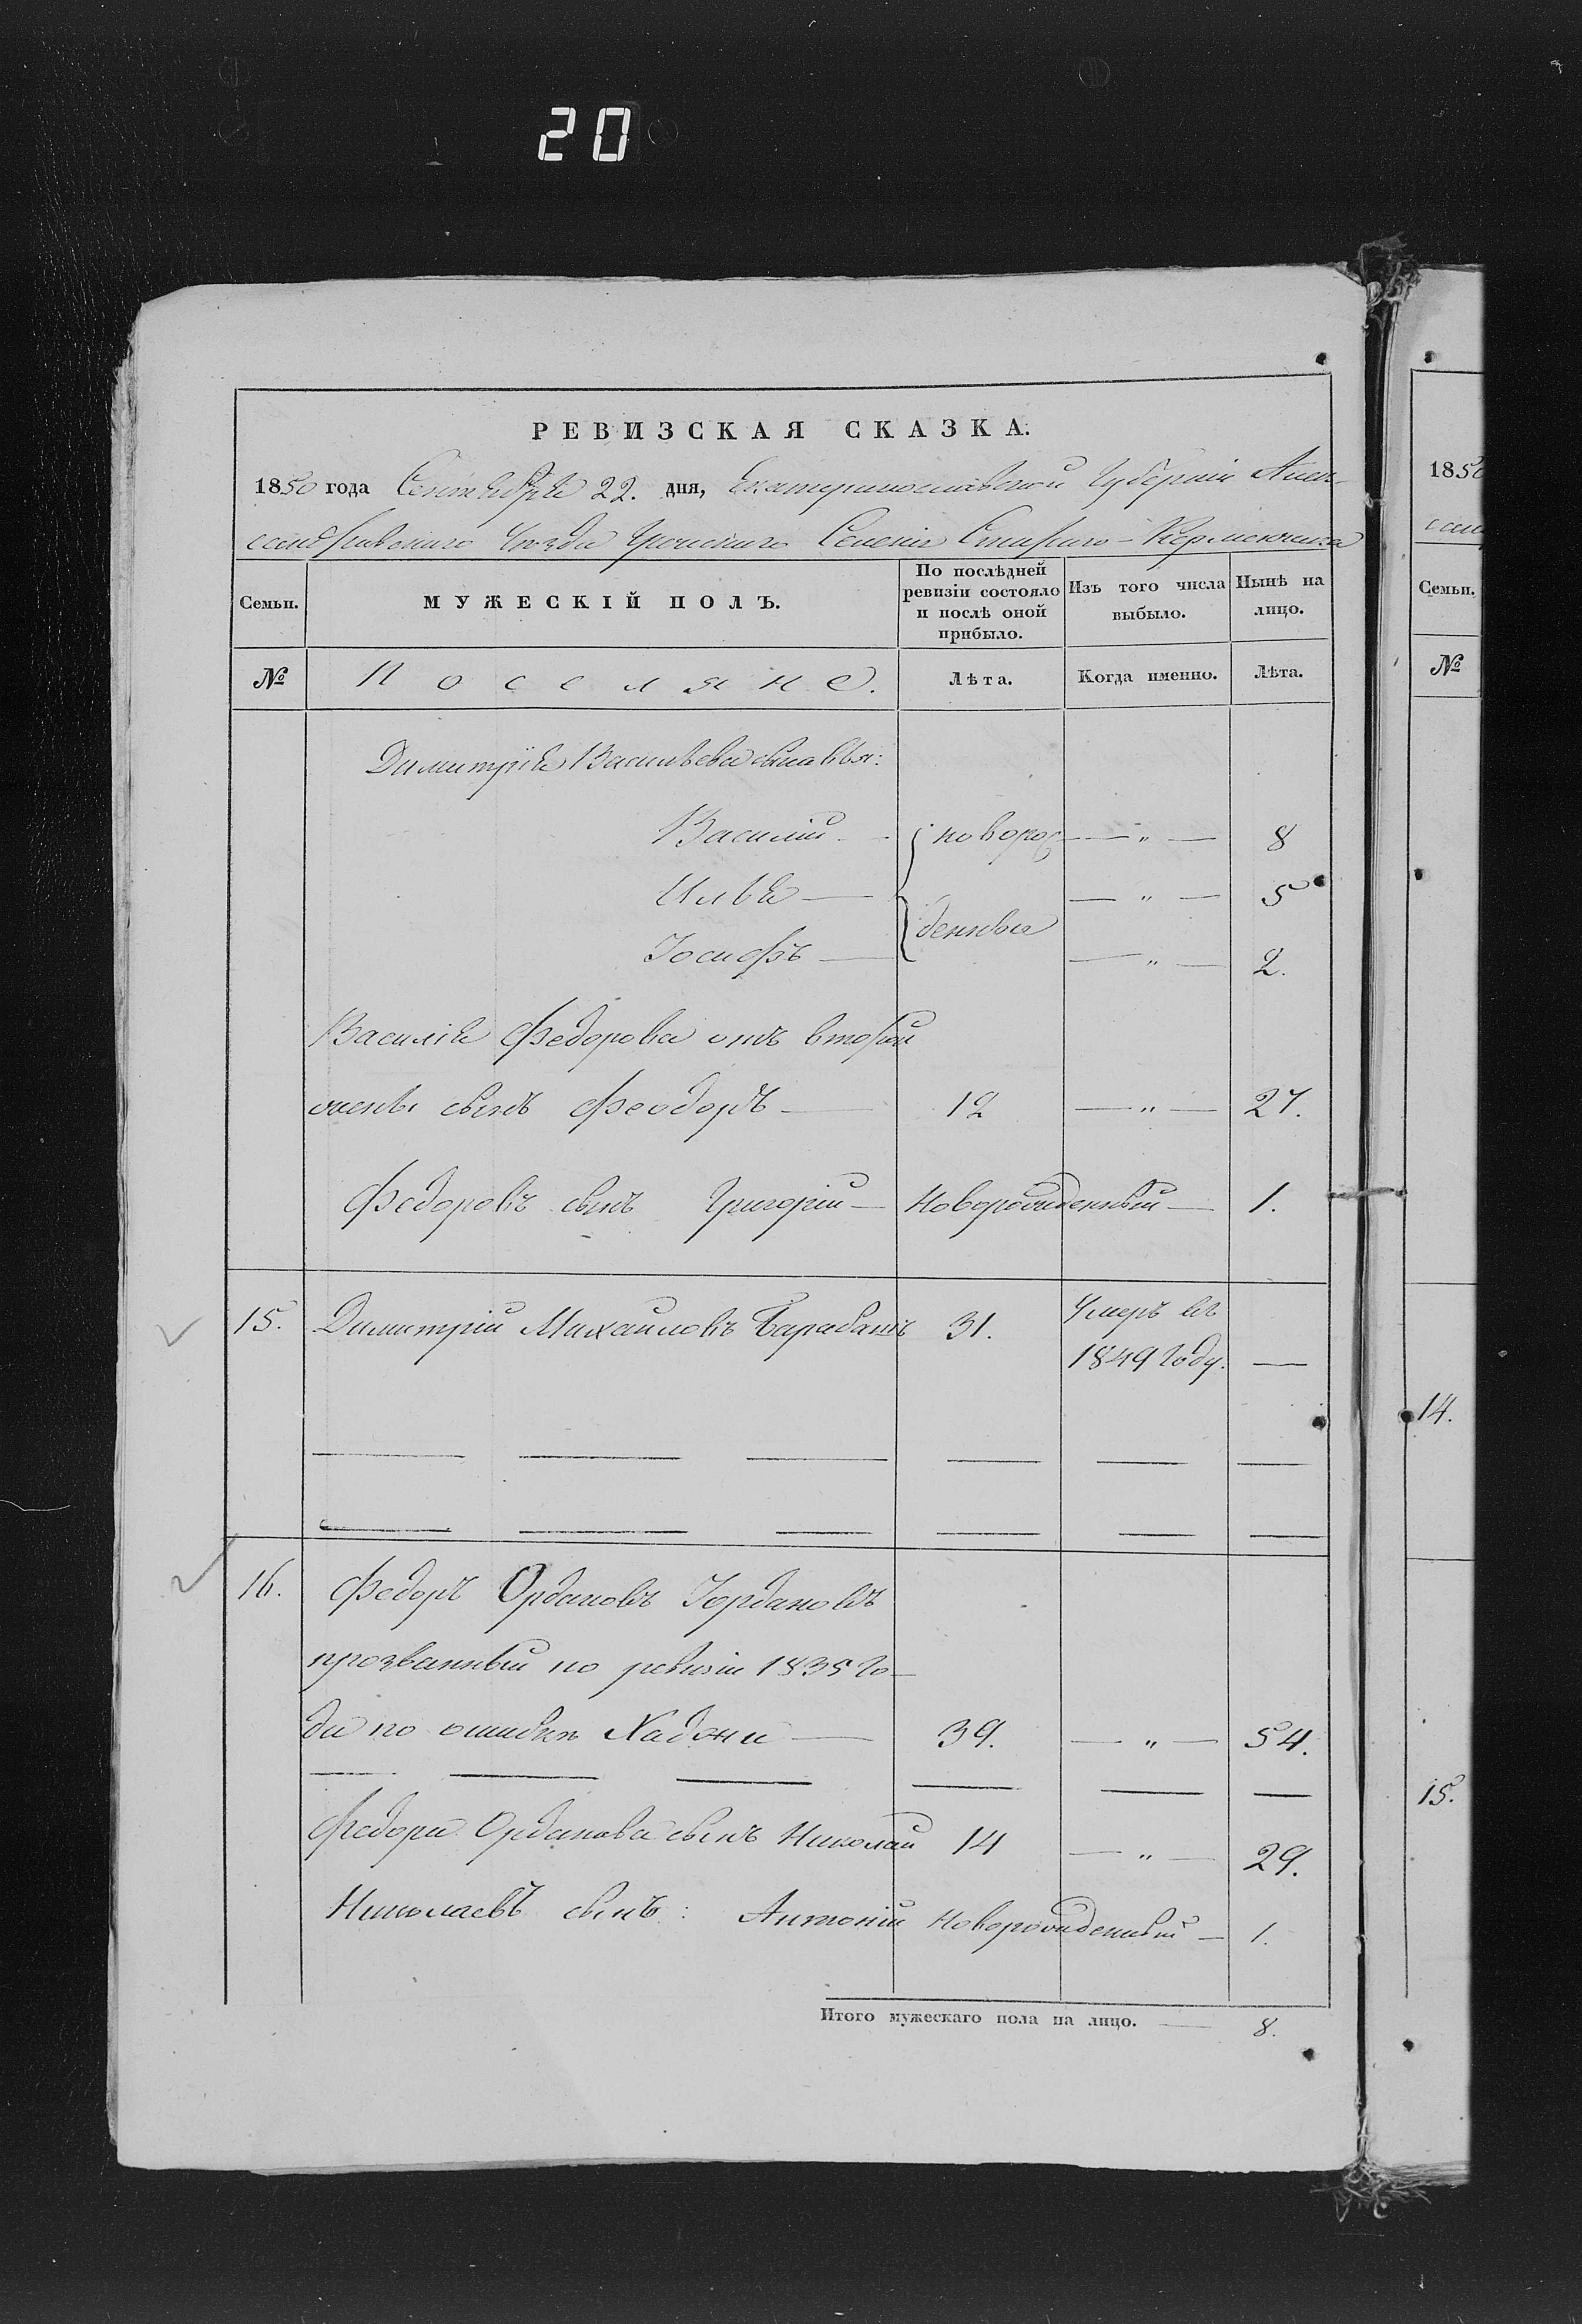 20
РЕВИЗСКАЯ СКАЗКА.
1850 года Сентября 22. дня, Екатеринославской Губернiи Алек-
сандровскаго Уѣзда Греческаго Селенiя Стараго-Керменчика
Семьи.
МУЖЕСКІЙ ПОЛЪ.
По послѣдней ревизіи состояло и послѣ оной прибыло.
Изъ того числа выбыло.
Нынѣ на лицо.
№
Поселяне.
Лѣта.
Когда именно.
Лѣта.
Димитрiя Васильева сыновья:
Василiй — новорож — " — 8
Илья — — " — 5
Iосифъ — денные — " — 2.
Василiя Федорова отъ второй
жены сынъ Феодоръ — 12 — " — 27.
Федоровъ сынъ Григорiй — Новорожденный — 1.
15. Димитрiй Михайловъ Барабашъ 31. Умеръ въ
1849 году. —
16. Федоръ Ордановъ Iордановъ
прозванный по ревизiи 1835 го-
да по ошибкѣ Хаджи — 39. — " — 54.
Федора Орданова сынъ Николай 14 — " — 29.
Николаевъ сынъ: Антонiй Новорожденный — 1.
Итого мужескаго пола на лицо. — 8.
1850
Семьи.
№
14.
15.